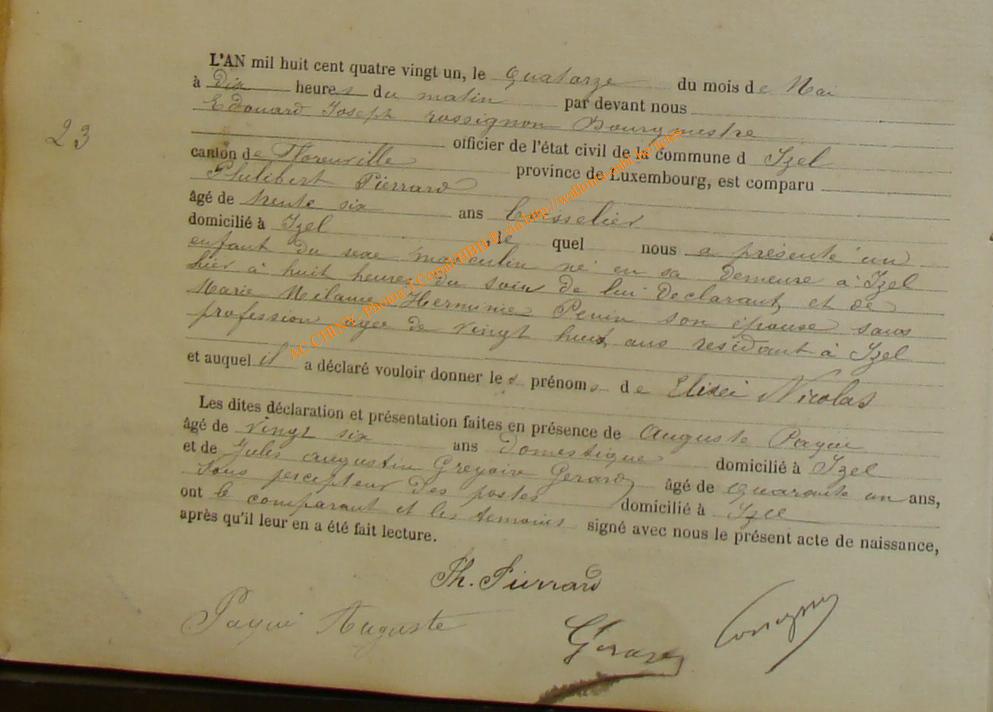 L'AN mil huit cent quatre vingt un, le quatorze du mois de Mai
à Dix heures du matin par devant nous
Edouard Joseph Rossignon Bourgmestre
23
officier de l'état civil de la commune d Izel
canton de Florenville province de Luxembourg, est comparu
Philibert Pierrard
âgé de trente six ans
domicilié à Izel le quel nous a présenté un
enfant du sexe masculin né en sa demeure à Izel
hier à huit heures du soir de lui Declarant, et de
Marie Mélanie Herminie Perin son épouse sans
profession agée de vingt huit ans residant à Izel
et auquel il a déclaré vouloir donner les prénoms de Elisée Nicolas
Les dites déclaration et présentation faites en présence de Auguste Paquі
âgé de vingt six ans domestique domicilié à Izel
et de Jules Augustin Grégoire Gerard âgé de quarante un ans,
sous percepteur des postes domicilié à Izel
ont le comparant et les temoins signé avec nous le présent acte de naissance,
après qu'il leur en a été fait lecture.
Ph. Pierrard
Paqui Auguste
Gerard
Rossignon